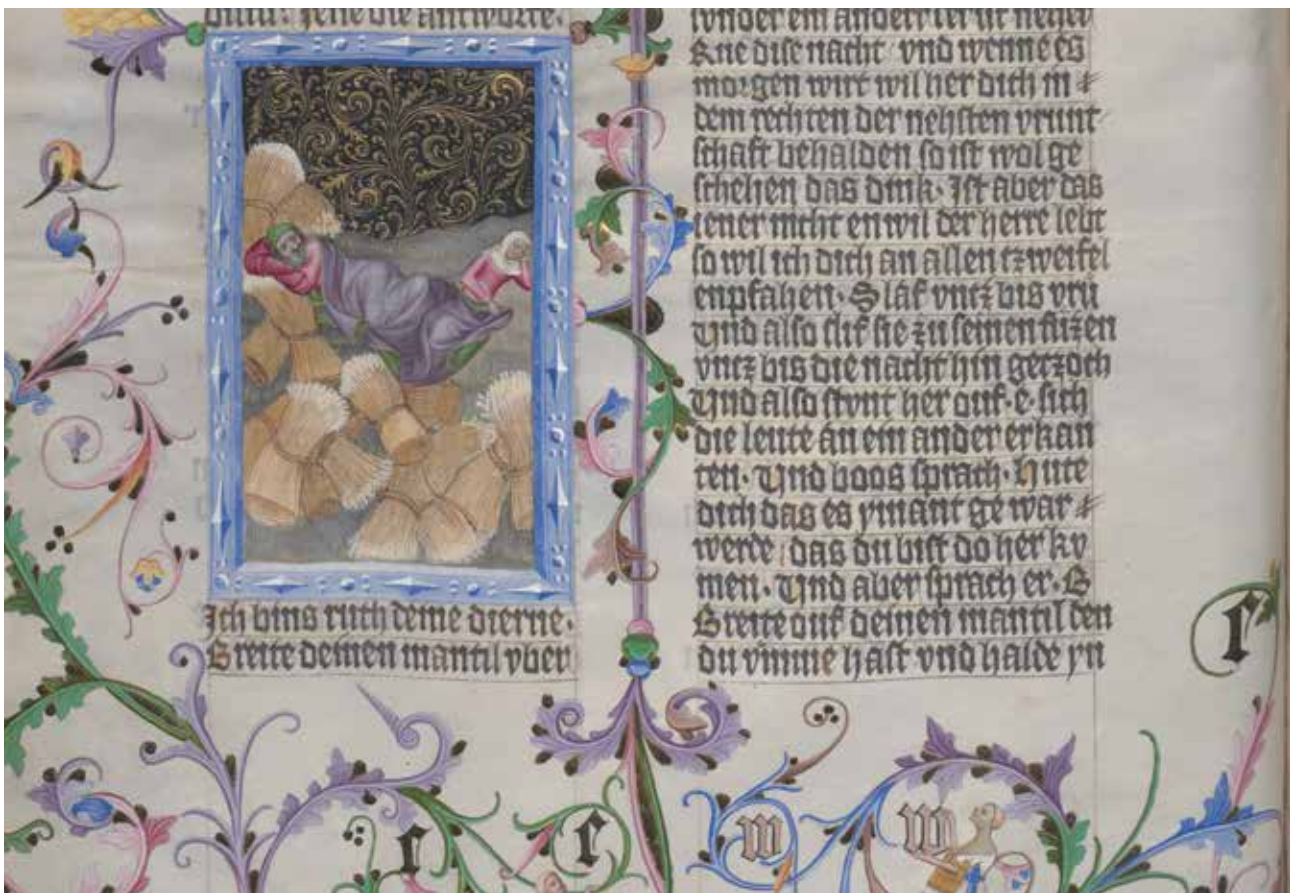 jene die antworte·
Ich bins ruth deine dierne·
Breite deinen mantil vber
vnder ein ander
Rue dise nacht vnd wenne es
morgen wirt wil her dich in
dem rechten der nehsten vrunt
schaft behalden so ist wol ge
schehen das dink· Ist aber das
iener nicht enwil der herre lebt
so wil ich dich an allen tzweifel
enpfahen· Slaf vntz bis vru
Vnd also slif sie zu seinen fuzen
vntz bis die nacht hin getzoch
Vnd also stunt her ouf· e· sich
die leute an ein ander erkan
ten· Vnd boos sprach· Hute
dich das es ymant gewar
werde das du bist do her ku
men· Vnd aber sprach er· B
Breite ouf deinen mantil den
du vmme hast vnd halde yn
f
f
w
w
f